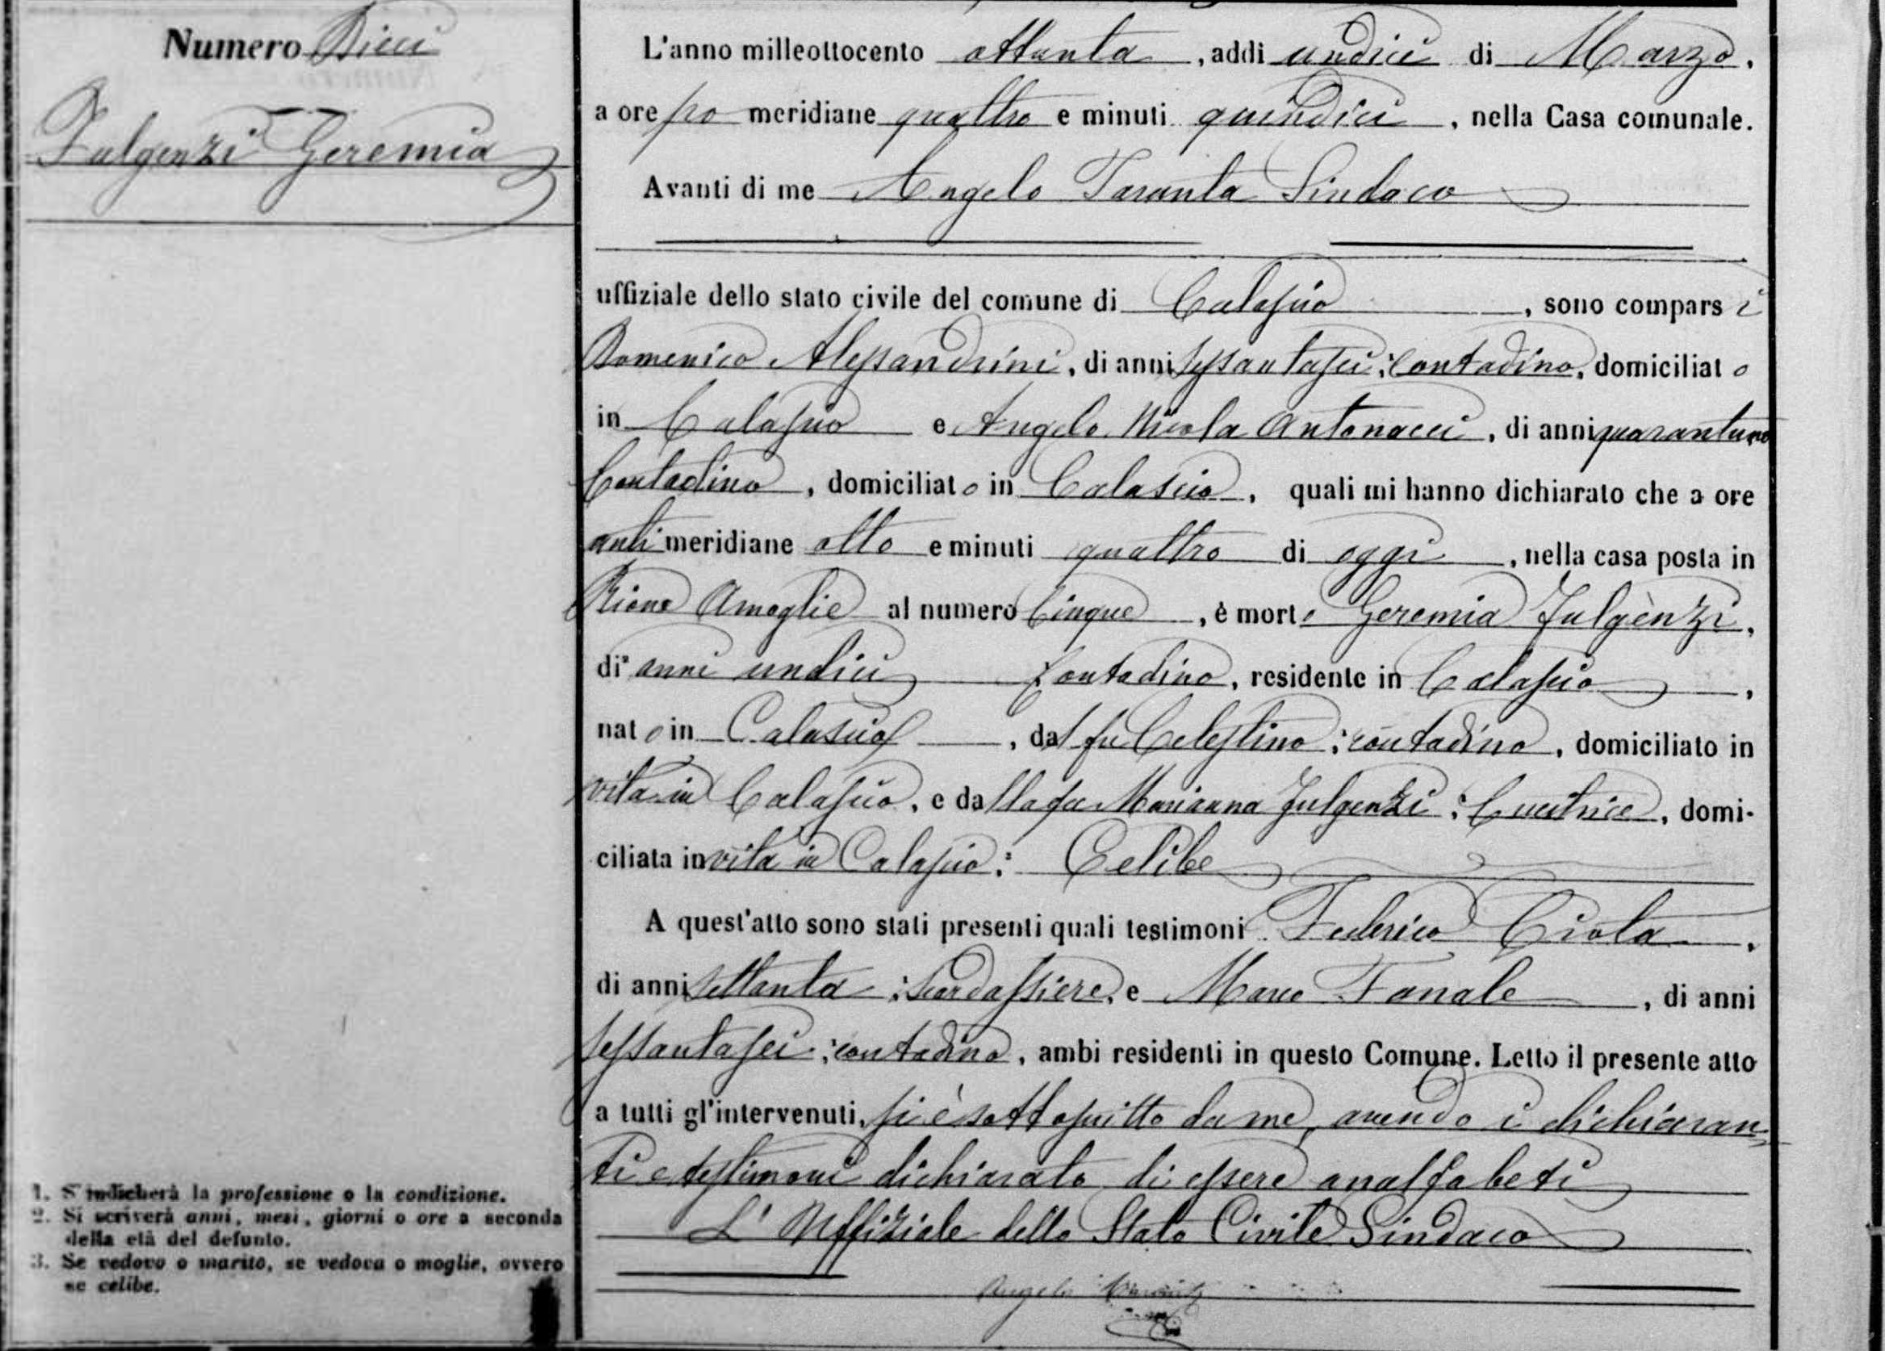 Numero Dieci
Fulgenzi Geremia
L'anno milleottocento ottanta, addì undici di Marzo,
a ore po meridiane quattro e minuti quindici, nella Casa comunale.
Avanti di me Angelo Taranta Sindaco
uffiziale dello stato civile del comune di Calascio, sono comparsi
Domenico Alessandrini, di anni sessantasei; contadino, domiciliato
in Calascio e Angelo Nicola Antonacci, di anni quarantuno
Contadino, domiciliato in Calascio, quali mi hanno dichiarato che a ore
anti meridiane otto e minuti quattro di oggi, nella casa posta in
Rione Amoglie al numero Cinque, è morto Geremia Fulgenzi,
di anni undici Contadino, residente in Calascio,
nato in Calascio, dal fu Celestino; contadino, domiciliato in
vita in Calascio, e dalla fu Marianna Fulgenzi; Cucitrice, domi-
ciliata in vita in Calascio: Celibe
A quest'atto sono stati presenti quali testimoni Federico Ciota,
di anni settanta; Scardassiere, e Marco Fanale, di anni
sessantasei; contadino, ambi residenti in questo Comune. Letto il presente atto
a tutti gl'intervenuti, si è sottoscritto da me, avendo i dichiaran-
ti e testimoni dichiarato di essere analfabeti
L'Uffiziale dello Stato Civile Sindaco
Angelo Taranta
1. S'indicherà la professione o la condizione.
2. Si scriverà anni, mesi, giorni o ore a seconda
della età del defunto.
3. Se vedovo o marito, se vedova o moglie, ovvero
se celibe.